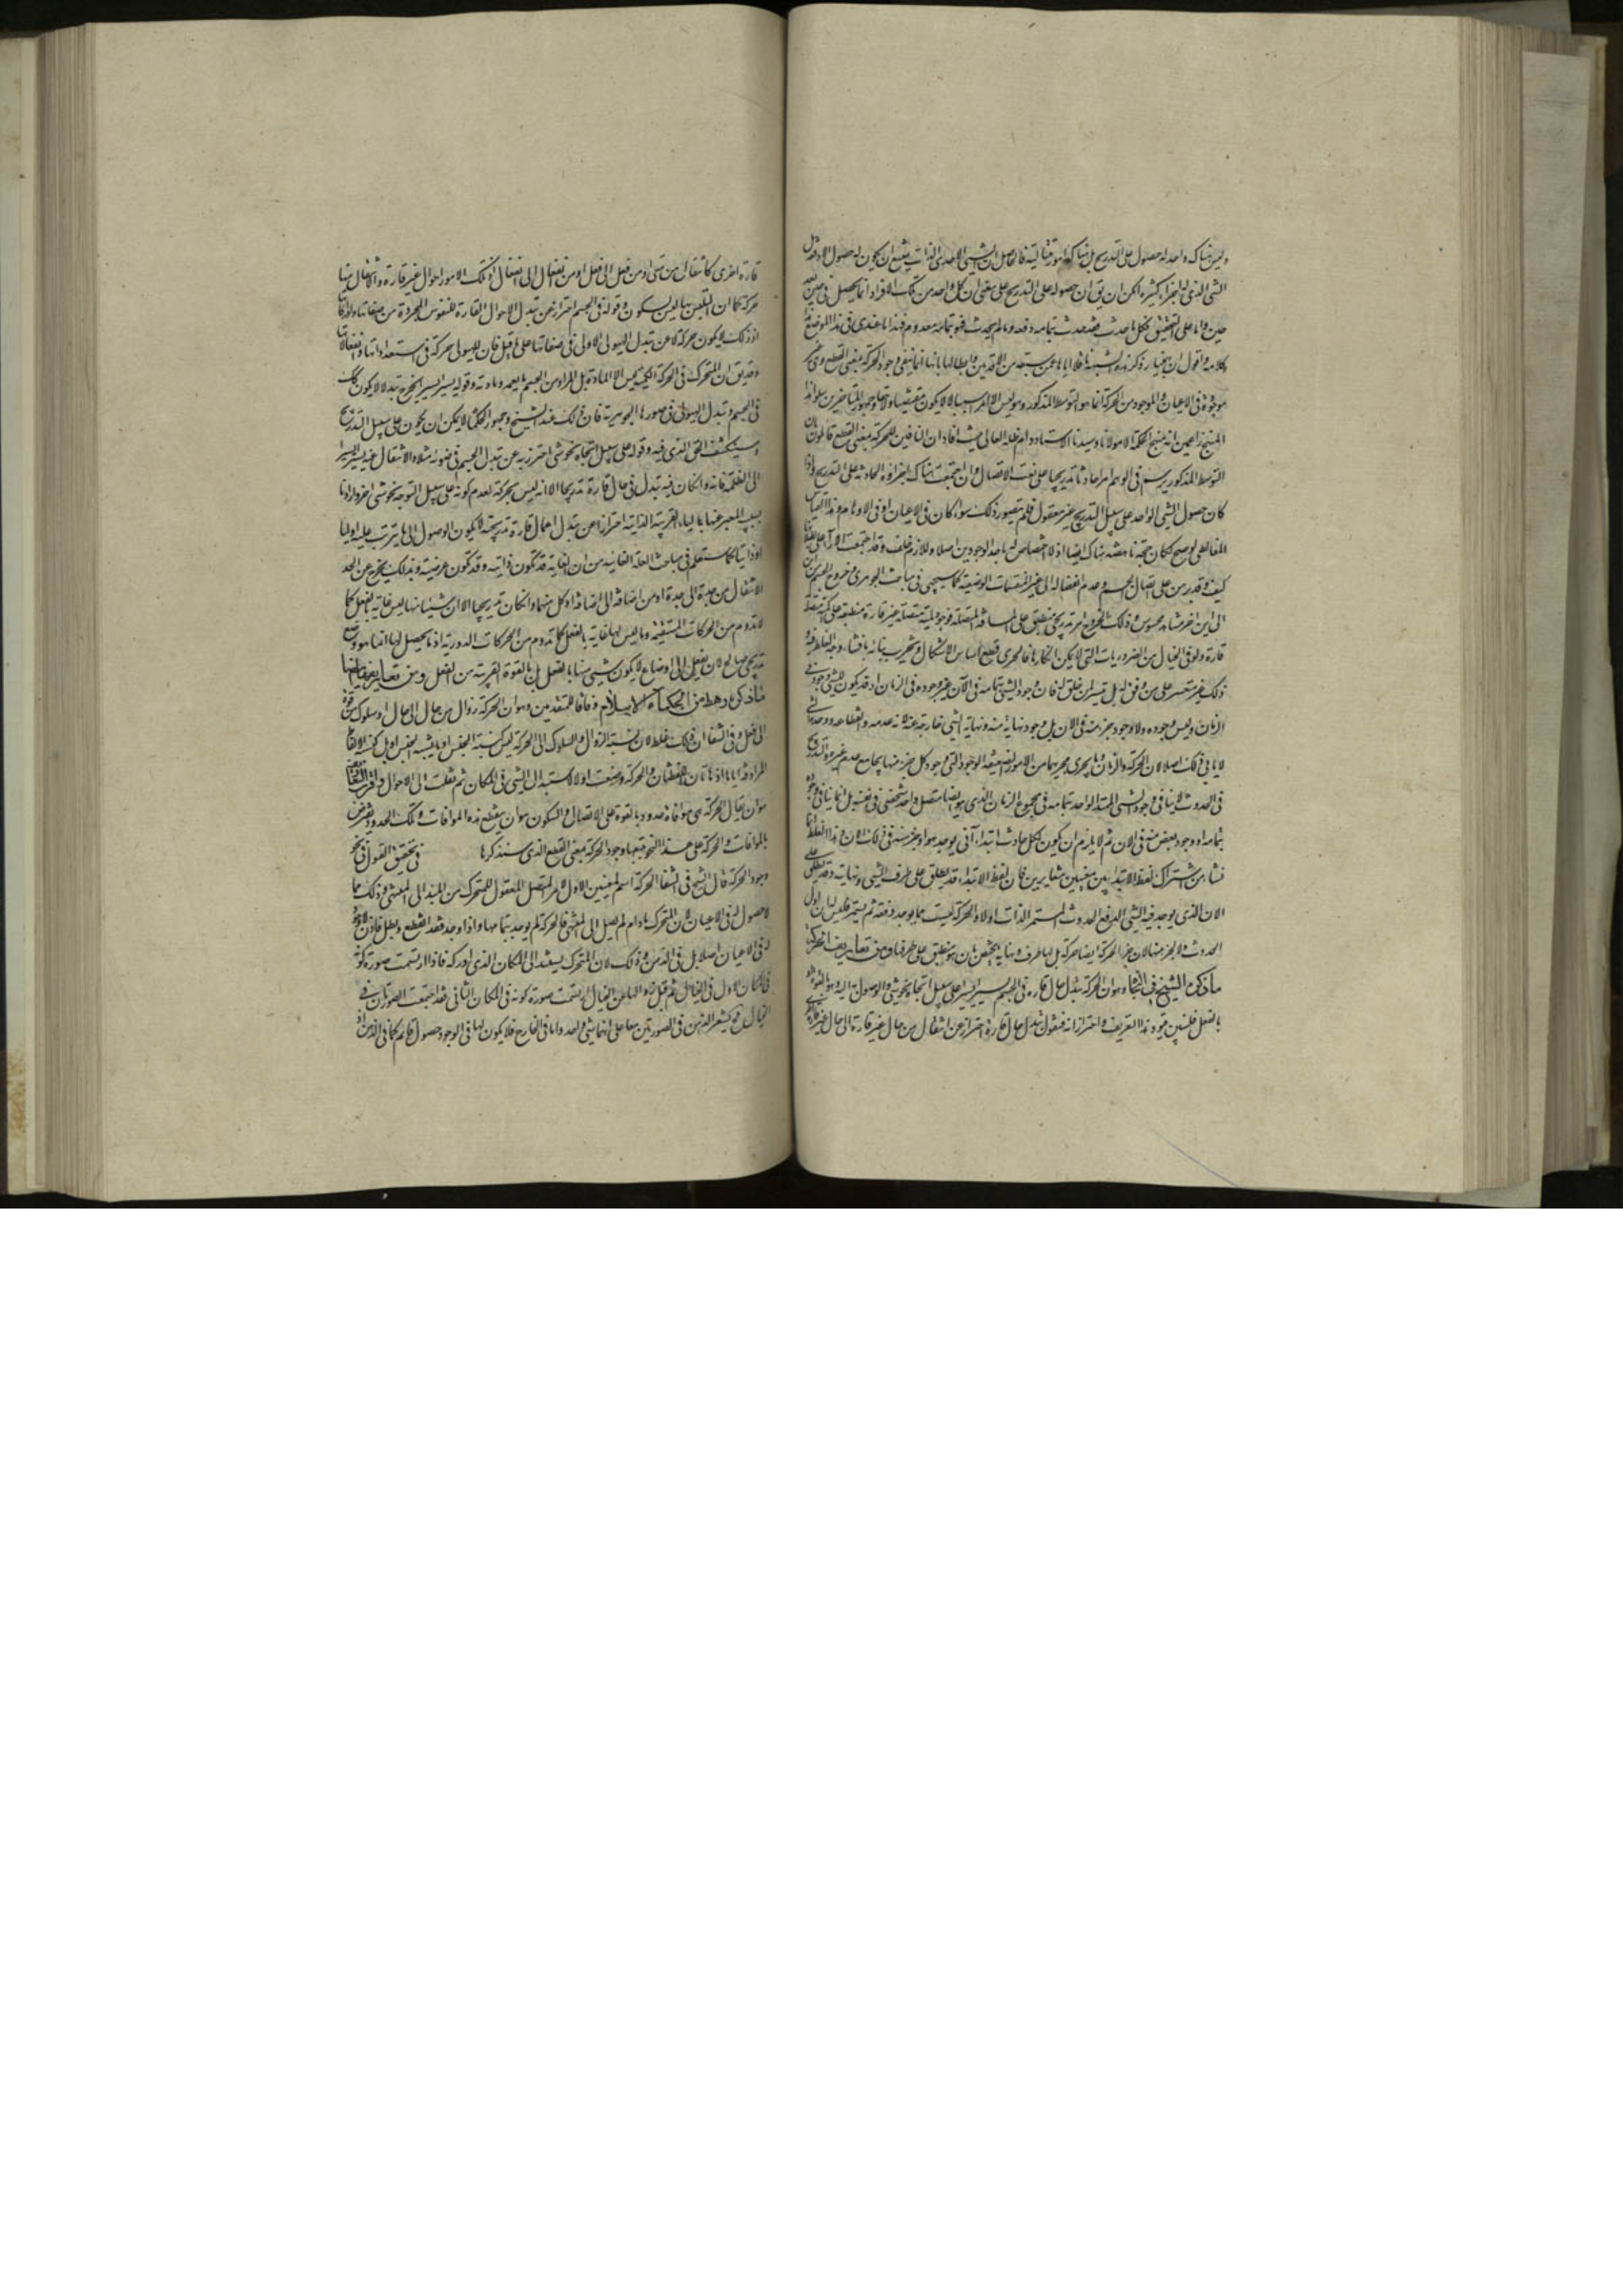 وليس هناك واحد له حصول على التدريج بل هناك امور متتالية فالحاصل ان الشيي الاحدي الذات يمتنع ان يكون له حصول الا دفعة بل
الشي الذي له اجزاء كثيرة امكن ان يق ان حصوله على التدريج على معنى ان كل واحد من تلك الافراد انما يحصل في حين بعد
حين واما على التحقيق فكل ما حدث فقد حدث بتمامه دفعة وما لم يحدث فهو بتمامه معدوم فهذا ما عندي في هذا الموضع
كلامه واقول ان بهمنيار ذكر هذه الشبهة ناقلا اياها عمن سبقه من الاقدمين وابطالها بانها انما تنفي وجود الحركة بمعنى القطع وهي غير
موجودة في الاعيان والموجود من الحركة انما هو التوسط المذكور وهو ليس الا امرا سيالا لا يكون متقضيا ولا وجمهور المتاخرين سلكوا هذا
المنهج زاعمين انه منهج الحكمة الا مولانا وسيدنا الاستاد دام ظله العالي حيث افاد ان النافين للحركة بمعنى القطع قائلون بان
التوسط المذكور يرسم في الوهم امرا حادثا تدريجيا على نعت الاتصال وان اجتمعت هناك اجزاؤه الحادثة على التدريج واذا
كان حصول الشي الواحد على سبيل التدريج غير معقول فلم يتصور ذلك سواء كان في الاعيان او في الاوهام وهذا القياس
المغالطي لو صح لكان حجة ناهضة هناك ايضا اذ لا اختصاص له باحد الوجودين اصلا واللازم خلف وقد اجتمعت الآراء على بطلانه
كيف وقد برهن على اتصال الجسم وعدم انفصاله الى غير المنقسمات الوضعية كما سيجيي في مباحث الجوهر وخروج الجسم من اين
الى اين اخر مشاهد محسوس وذلك الخروج امر تدريجي منطبق على المسافة المتصلة فوجود متصلة غير قارة منطبقة على متصلة
قارة ولو في الخيال من الضروريات التي لا يمكن انكارها فالحري قطع اساس الاشكال وتخريب بنائه بافشاء وجه الغلط فيه
وذلك غير متعسر على من وفق له بل متيسر لمن خلق له فان وجود الشيي بتمامه في الآن غير وجوده في الزمان اذ قد يكون للشيي وجود في
الزمان وليس وجوده ولا وجود جزء منه في الان بل وجود نهاية منه ونهاية الشي خارجة عنه لانه عدمه وانقطاعه
لا ينافي ذلك اصلا لان الحركة والزمان وما يجري مجريهما من الامور الضعيفة الوجود التي وجود كل جزء منها يجامع عدم غيره والتدريج
في الحدوث لا ينافي وجود الشيي الممتد الواحد بتمامه في مجموع الزمان الذي هو ايضا متصل واحد شخصي في نفسه بل انما ينافي وجوده
بتمامه او وجود بعض منه في الان ثم لا يلزم ان يكون لكل حادث ابتداء آني يوجد هو او جزء منه في ذلك الان وهذا الغلط انما
نشا من اشتراك لفظ الابتداء بين معنيين متغايرين فان لفظ الابتداء قد يطلق على طرف الشيي ونهايته وقد يطلق على
الان الذي يوجد فيه الشيي الدفعي الحدوث المستمر الذات اولا والحركة ليست مما يوجد دفعة ثم يستمر فليس لها اول
الحدوث والجزء منها لان جزء الحركة ايضا حركة بل لها طرف ونهاية يختص بان هو منطبق على طرفها ومن تعاريف الحركة
ما ذكره الشيخ في النجاة وهو ان الحركة تبدل حال قارة في الجسم يسيرا يسيرا على سبيل اتجاه نحو شيي والوصول اليه هو بالقوة لا
بالفعل فلنبين قيود هذا التعريف واحترازاته فنقول تبدل حال قارة احتراز عن انتقال من حال غير قارة الى حال غير
قارة اخرى كانتقال من متى او من فعل الى فعل او من انفعال الى انفعال اذ تلك الامور احوال غير قارة والانتقال منها
حركة كما ان التلبس بها ليس بسكون وقوله في الجسم احتراز عن تبدل الاحوال القارة للنفوس المجردة من صفاتها وادراكاتها
اذ ذلك لا يكون حركة لا عن تبدل الهيولى الاولى في صفاتها على ما قيل فان للهيولى حركة في استعداداتها وانفعالاتها
وقد يق ان المتحرك في الحركة الكمية ليس الا المادة بل المراد من الجسم ما يعمه ومادته وقوله يسيرا يسيرا يخرج تبدلا لا يكون كك
في الجسم وتبدل الهيولى في صورها الجوهرية فان ذلك عند الشيخ وجمهور الحكما لا يمكن ان يكون على سبيل التدريج
وسينكشف الحق الذي فيه وقوله على سبيل اتجاه نحو شي احترز به عن تبدل الجسم في ضوئه مثلا والانتقال عنه يسيرا يسيرا
الى الظلمة فانه وان كان فيه تبدل في حال قارة تدريجا الا انه ليس بحركة لعدم كونه على سبيل التوجه نحو شي اخر واراد بالسببية
المعبر عنها بالباء القريبة الذاتية احترازا عن تبدل احوال قارة تدريجية لا يكون الوصول الى ما يترتب عليه اوليا
او ذاتيا كما ستعلم في مباحث العلة الغائية من ان الغاية قد تكون ذاتية وقد تكون عرضية وبذلك يخرج عن الحد
الانتقال من جدة الى جدة او من اضافة الى اضافة اذ كل منهما وان كان تدريجيا الا ان شيئا منها ليس غاية بالفعل كما
لا تدوم من الحركات المستقيمة وما ليس لها غاية بالفعل كما تدوم من الحركات الدورية اذ ما يحصل لها انما هو وضع
تدريجي صالح لان يفعل الى اوضاع لا يكون شيي منها بالفعل بل بالقوة القريبة من الفعل ومن تعاريفها ايضا
ما ذكره رهط من الحكماء الاسلام وفاقا للمتقدمين وهو ان الحركة زوال من حال الى حال او سلوك من قوة
الى فعل وفي الشفا ان ذلك غلط لان نسبة الزوال والسلوك الى الحركة ليس كنسبة الجنس او ما يشبه الجنس بل كنسبة الالفاظ
المرادفة اياها اذ هاتان اللفظتان والحركة وضعت اولا لاستبدال الشيي في المكان ثم نقلت الى الاحوال
هو ان يقال الحركة هي موافاة حدود بالقوة على الاتصال والسكون هو ان ينقطع هذه الموافاة وتلك الحدود يفترض
بالموافات والحركة على هذا النحو يتبعها وجود الحركة بمعنى القطع الذي سنذكرها في تحقيق القول في نحو
وجود الحركة قال الشيخ في الشفا الحركة اسم لمعنيين الاول الامر المتصل المعقول للمتحرك من المبدا الى المنتهى وذلك مما
لا حصول له في الاعيان لان المتحرك ما دام لم يصل الى المنتهى فالحركة لم يوجد بتمامها واذا وجد فقد انقطع وبطل فاذن لا وجود
له في الاعيان اصلا بل في الذهن وذلك لان المتحرك نسبة الى المكان الذي ادركه فاذا ارتسمت صورة كونه
في المكان الاول في الخيال ثم قبل زوالها عن الخيال ارتسمت صورة كونه في المكان الثاني فقد اجتمعت الصورتان في
الخيال وح يشعر الذهن في الصورتين معا على انهما شي واحد واما في الخارج فلا يكون لها في الوجود حصول قائم كما في الذهن اذ